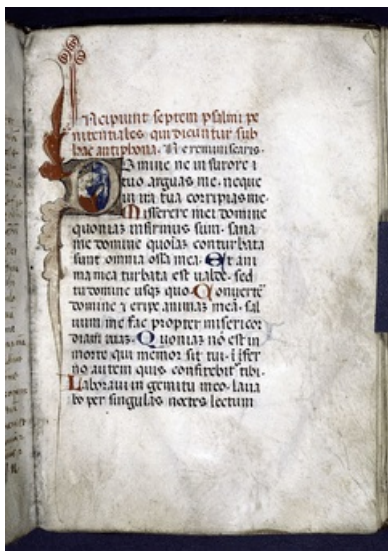 Incipiunt septem psalmi pe
nitentiales. qui dicuntur sub
hac antiphona. Ne reminiscaris.
Domine ne in furore t
tuo arguas me. neque
in ira tua corripias me.
Miserere mei domine
quoniaz infirmus sum. sana
me domine quoniaz conturbata
sunt omnia ossa mea. Et ani
ma mea turbata est ualde. sed
tu domine usqz quo. Conuerte
domine ⁊ eripe animaz meã. sal
uum me fac propter misericor
diam tuaz. Quoniaz nõ est in
morte qui memor sit tui. ĩ ĩfer
no autem quis confitebit tibi.
Laboraui in gemitu meo. laua
bo per singulas noctes lectum